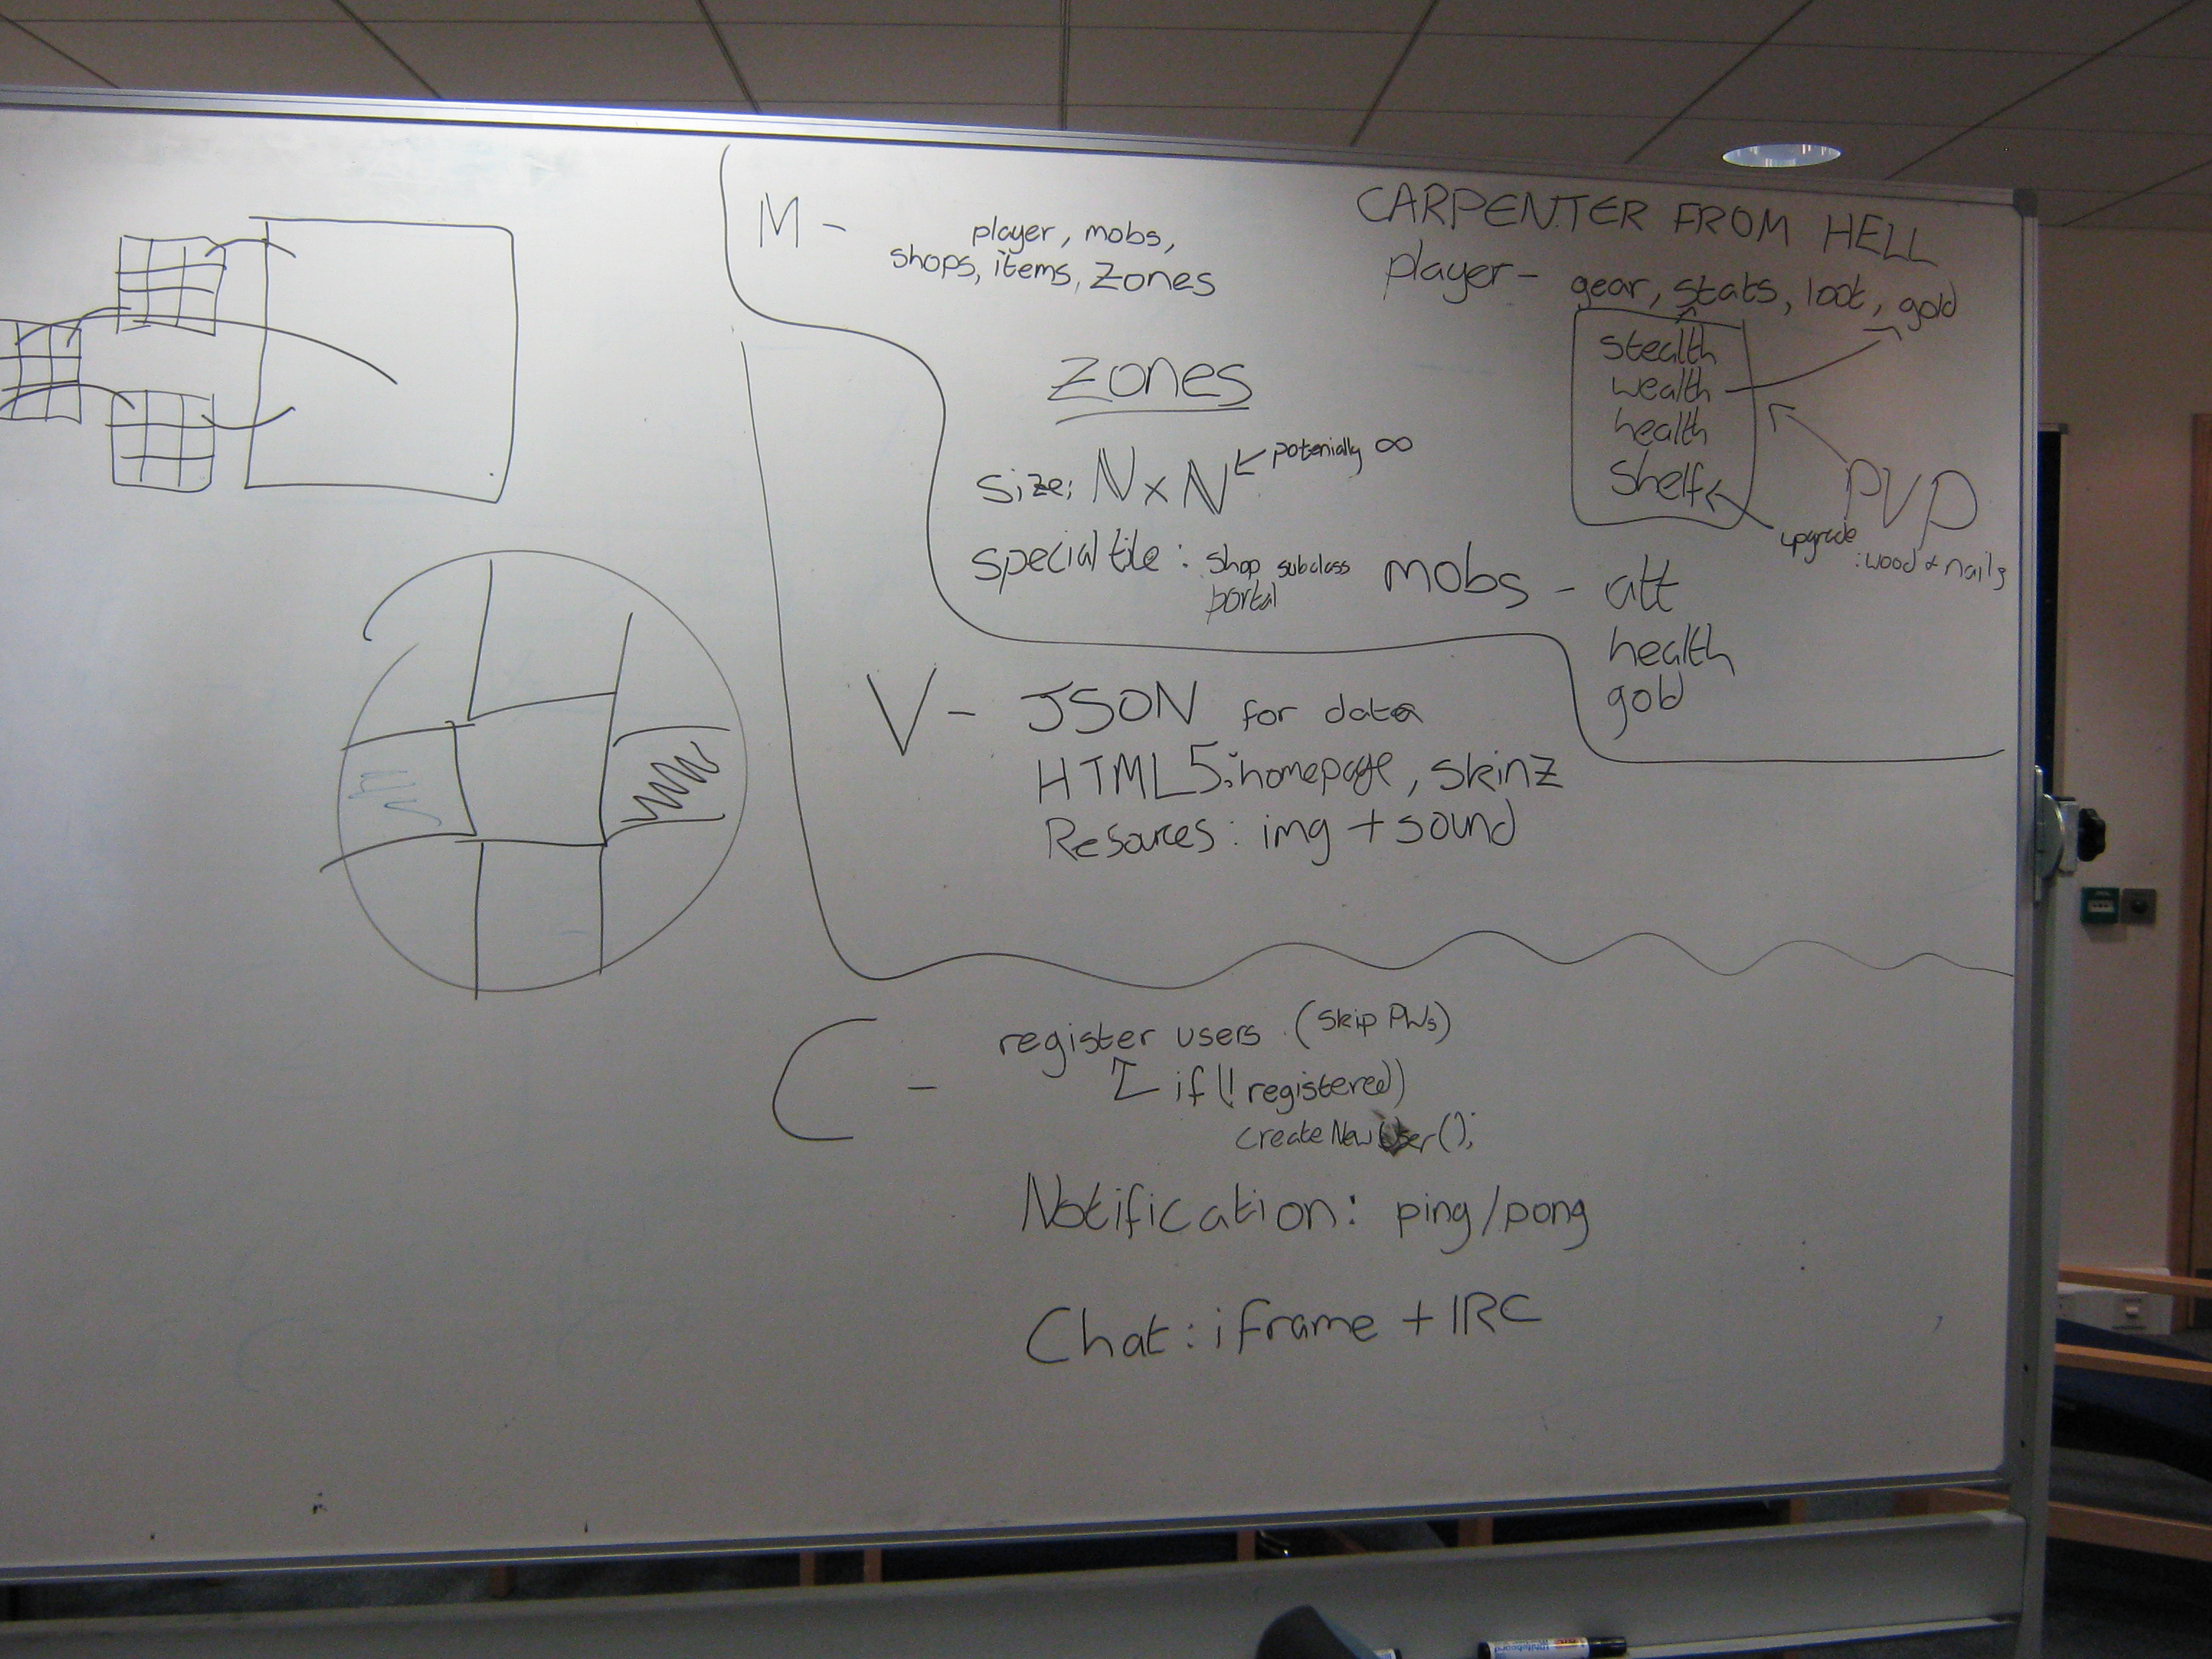 M - player, mobs,
shops, items, zones
CARPENTER FROM HELL
player - gear, stats, loot, gold
stealth
wealth
health
shelf
PVP
upgrade
: wood + nails
zones
size: N x N potenially ∞
special tile: shop subclass
portal
mobs - att
health
gold
V - JSON for data
HTML5: homepage, skinz
Resources: img + sound
C - register users (skip PWs)
if (! registered))
createNewUser();
Notification: ping/pong
Chat: iframe + IRC